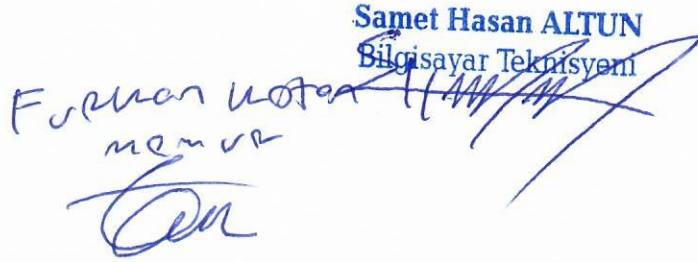 Samet Hasan ALTUN
Bilgisayar Teknisyeni
Furkan
memur